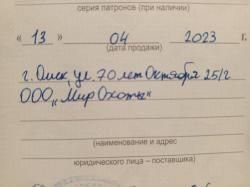 серия патронов (при наличии)
« 13 » 04 2023 г.
(дата продажи)
г. Омск, ул. 70 лет Октября 25/2
ООО „Мир Охоты"
(наименование и адрес
юридического лица – поставщика)